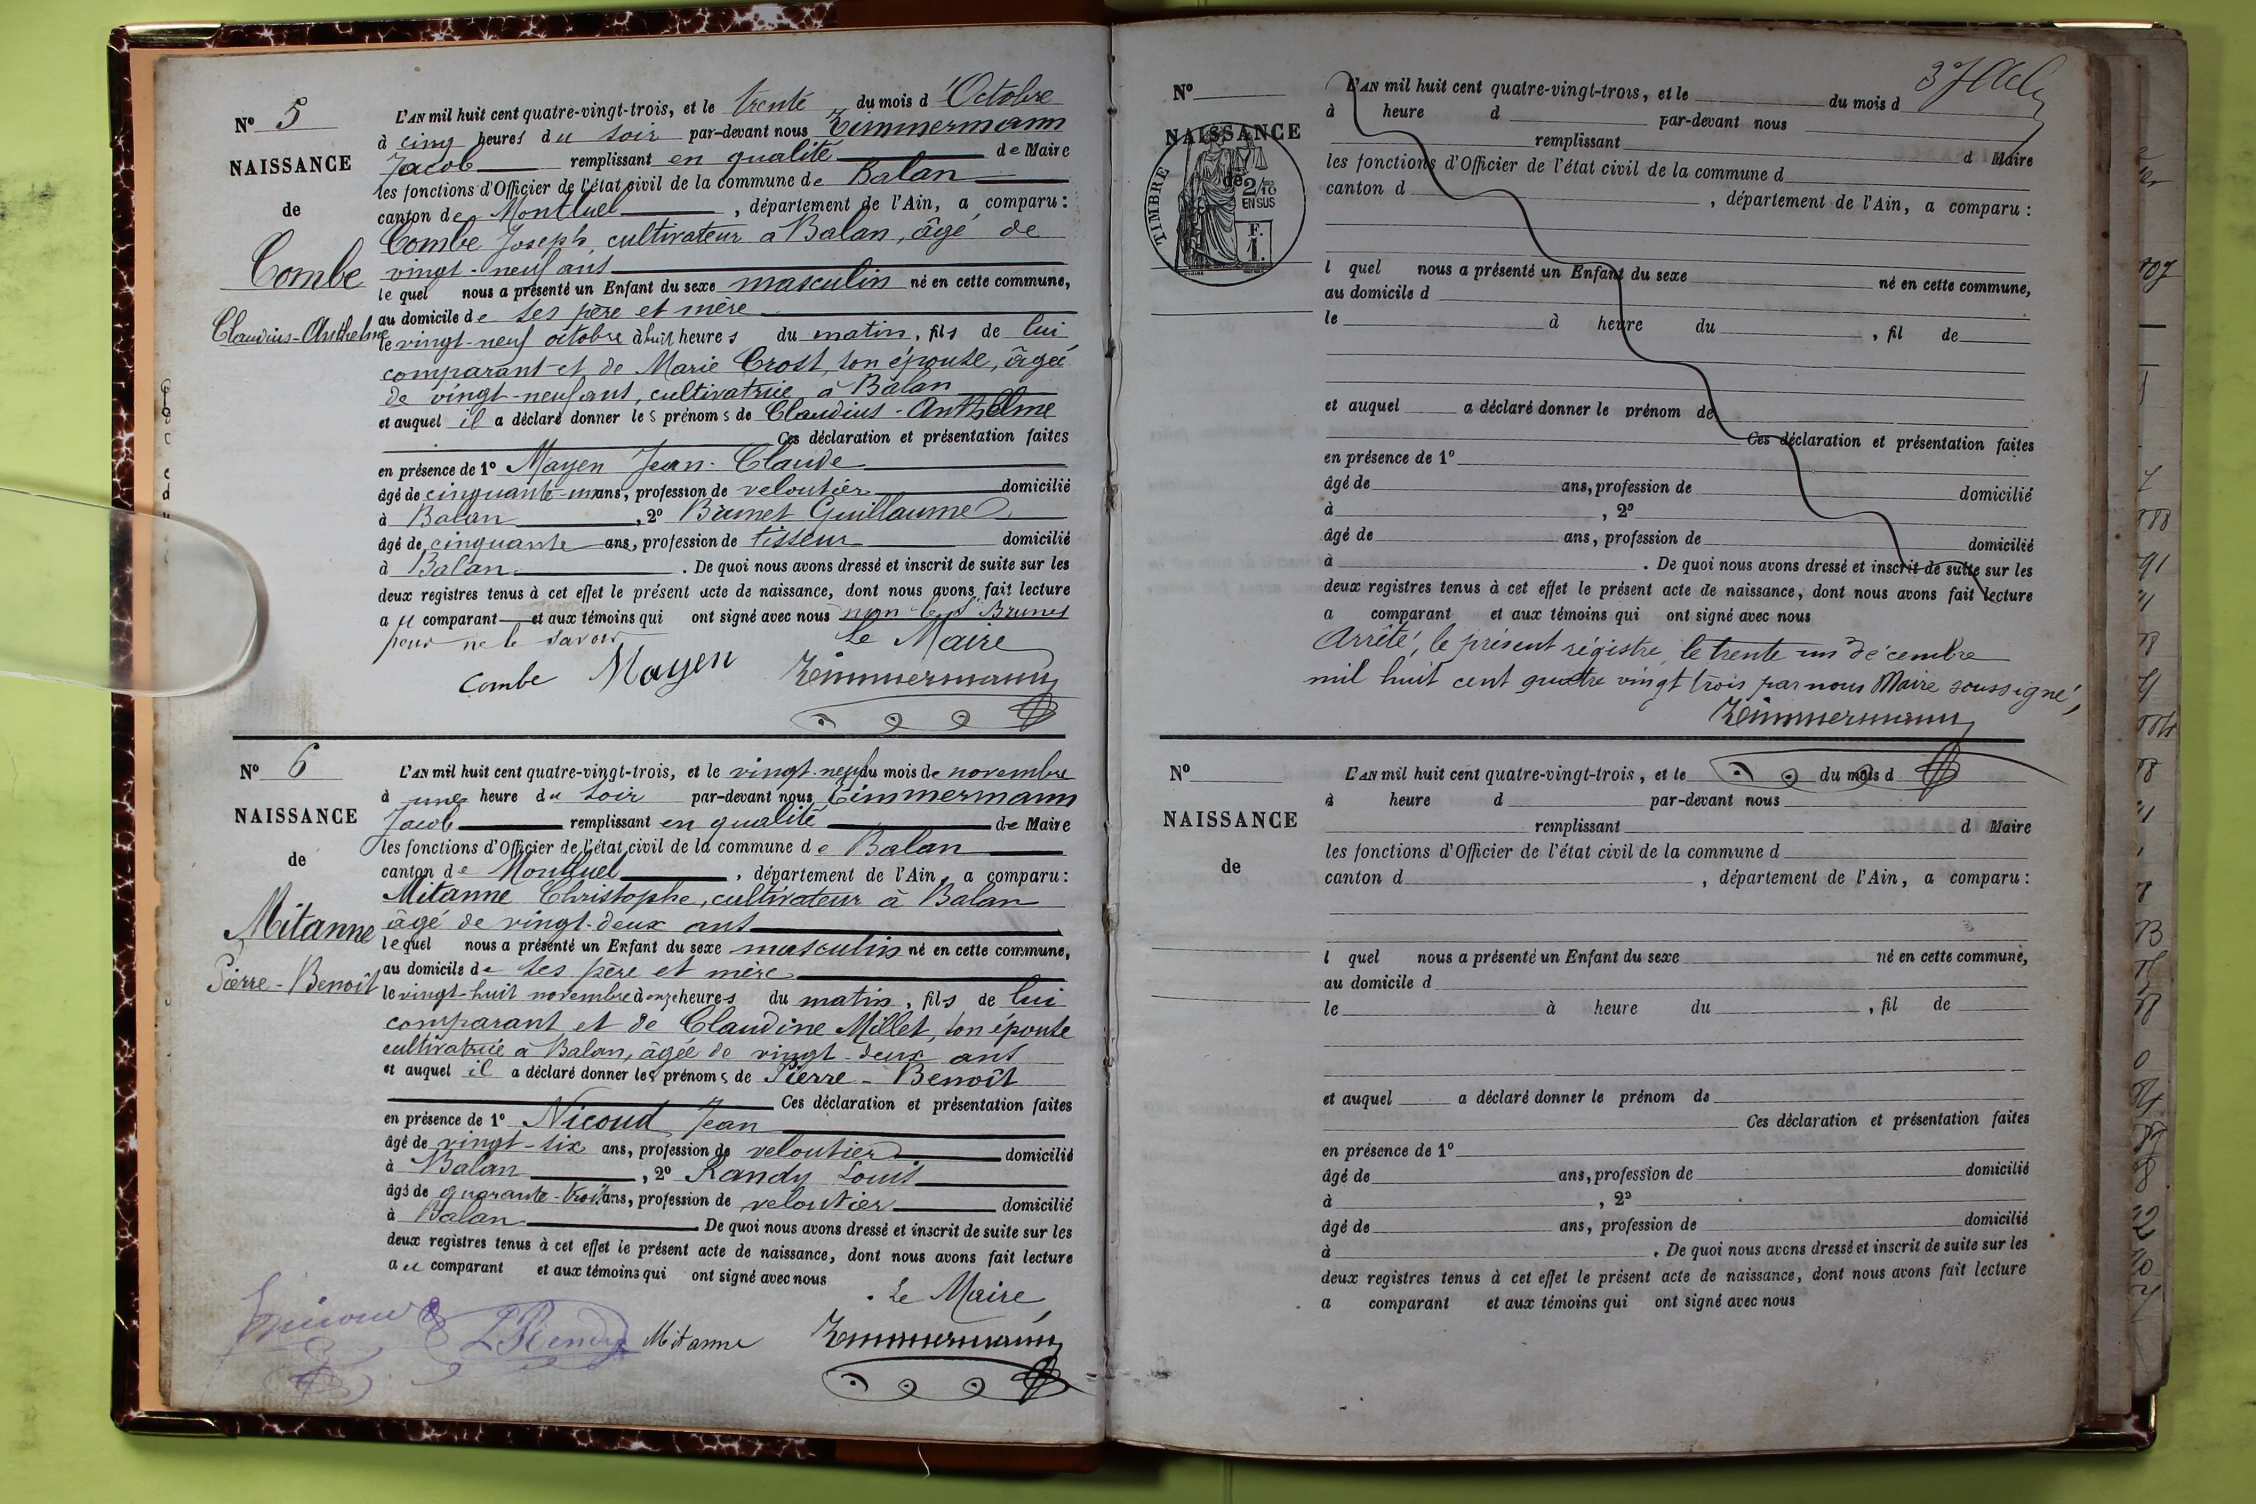 N° 5
NAISSANCE
de
Combe
Claudius-Anthelme
L'AN mil huit cent quatre-vingt-trois, et le trente du mois d'Octobre
à cinq heures du soir par-devant nous Zimmermann
Jacob remplissant en qualité de Maire
les fonctions d'Officier de l'état civil de la commune de Balan
canton de Montluel, département de l'Ain, a comparu :
Combe Joseph, cultivateur à Balan, âgé de
vingt-neuf ans
lequel nous a présenté un Enfant du sexe masculin né en cette commune,
au domicile de ses père et mère
le vingt-neuf octobre à huit heures du matin, fils de lui
comparant et de Marie Crost, son épouse, âgée
de vingt-neuf ans, cultivatrice à Balan
et auquel il a déclaré donner les prénoms de Claudius-Anthelme
Ces déclaration et présentation faites
en présence de 1° Mayen Jean-Claude
âgé de cinquante-un ans, profession de veloutier domicilié
à Balan, 2° Brunet Guillaume
âgé de cinquante ans, profession de tisseur domicilié
à Balan. De quoi nous avons dressé et inscrit de suite sur les
deux registres tenus à cet effet le présent acte de naissance, dont nous avons fait lecture
au comparant et aux témoins qui ont signé avec nous non le s' Brunet
pour ne le savoir Le Maire
Combe Mayen Zimmermann
N° 6
NAISSANCE
de
Mitanne
Pierre-Benoît
L'AN mil huit cent quatre-vingt-trois, et le vingt-neuf du mois de novembre
à une heure du soir par-devant nous Zimmermann
Jacob remplissant en qualité de Maire
les fonctions d'Officier de l'état civil de la commune de Balan
canton de Montluel, département de l'Ain, a comparu :
Mitanne Christophe, cultivateur à Balan
âgé de vingt-deux ans
lequel nous a présenté un Enfant du sexe masculin né en cette commune,
au domicile de ses père et mère
le vingt-huit novembre à onze heures du matin, fils de lui
comparant et de Claudine Millet, son épouse
cultivatrice à Balan, âgée de vingt-deux ans
et auquel il a déclaré donner les prénoms de Pierre-Benoît
Ces déclaration et présentation faites
en présence de 1° Nicoud Jean
âgé de vingt-six ans, profession de veloutier domicilié
à Balan, 2° Randy Louis
âgé de quarante-trois ans, profession de veloutier domicilié
à Balan. De quoi nous avons dressé et inscrit de suite sur les
deux registres tenus à cet effet le présent acte de naissance, dont nous avons fait lecture
au comparant et aux témoins qui ont signé avec nous
Le Maire
Mitanne Zimmermann
N°
NAISSANCE
de
TIMBRE
2/10
EN SUS
F.
1.
L'AN mil huit cent quatre-vingt-trois, et le du mois d
à heure d par-devant nous
remplissant d Maire
les fonctions d'Officier de l'état civil de la commune d
canton d , département de l'Ain, a comparu :
l quel nous a présenté un Enfant du sexe né en cette commune,
au domicile d
le à heure du , fil de
et auquel a déclaré donner le prénom de
Ces déclaration et présentation faites
en présence de 1°
âgé de ans, profession de domicilié
à , 2°
âgé de ans, profession de domicilié
à . De quoi nous avons dressé et inscrit de suite sur les
deux registres tenus à cet effet le présent acte de naissance, dont nous avons fait lecture
a comparant et aux témoins qui ont signé avec nous
Arrêté, le présent régistre, le trente un décembre
mil huit cent quatre vingt trois par nous Maire soussigné,
Zimmermann
N°
NAISSANCE
de
L'AN mil huit cent quatre-vingt-trois, et le du mois d
à heure d par-devant nous
remplissant d Maire
les fonctions d'Officier de l'état civil de la commune d
canton d , département de l'Ain, a comparu :
l quel nous a présenté un Enfant du sexe né en cette commune,
au domicile d
le à heure du , fil de
et auquel a déclaré donner le prénom de
Ces déclaration et présentation faites
en présence de 1°
âgé de ans, profession de domicilié
à , 2°
âgé de ans, profession de domicilié
à . De quoi nous avons dressé et inscrit de suite sur les
deux registres tenus à cet effet le présent acte de naissance, dont nous avons fait lecture
a comparant et aux témoins qui ont signé avec nous